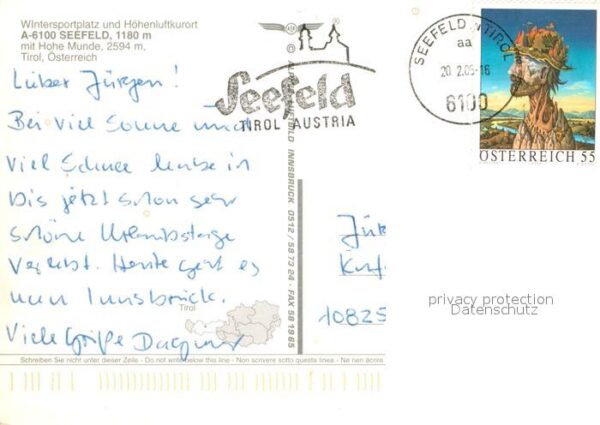 Wintersportplatz und Höhenluftkurort
A-6100 SEEFELD, 1180 m
mit Hohe Munde, 2594 m,
Tirol, Österreich
Lieber Jürgen!
Bei viel Sonne und
viel Schnee habe ich
bis jetzt schon sehr
schöne Urlaubstage
verlebt. Heute geht es
nach Innsbruck.
Viele Grüße Dagmar
Tirol
Seefeld
TIROL AUSTRIA
INNSBRUCK 0512 / 58 73 24 · FAX 58 19 85
SEEFELD TIROL
aa
20.2.05-16
6100
ÖSTERREICH 55
Jür
Kurf
10825
privacy protection
Datenschutz
Schreiben Sie nicht unter dieser Zeile - Do not write below this line - Non scrivere sotto questa linea - Ne rien écrire